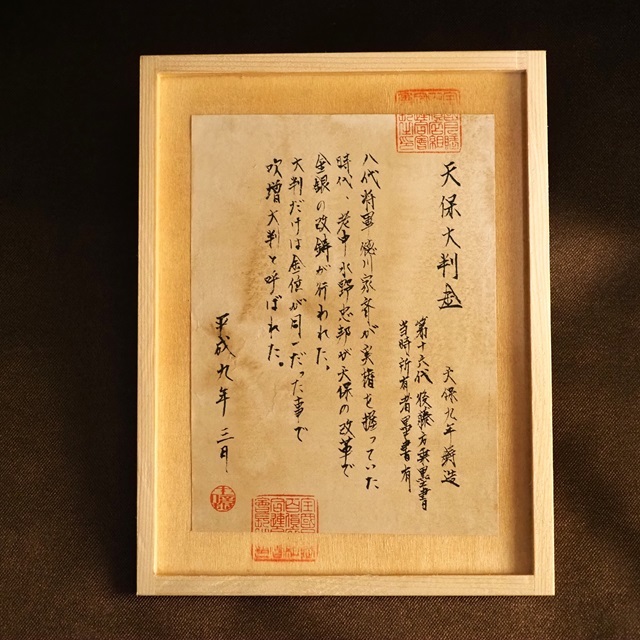 天保大判金
天保九年鋳造
第十六代後藤方乗墨書
当時所有者墨書有
八代将軍徳川家斉が実権を握っていた
時代、老中水野忠邦が天保の改革で
金銀の改鋳が行われた。
大判だけは金位が同一だった事で
吹増大判と呼ばれた。
平成九年 三月